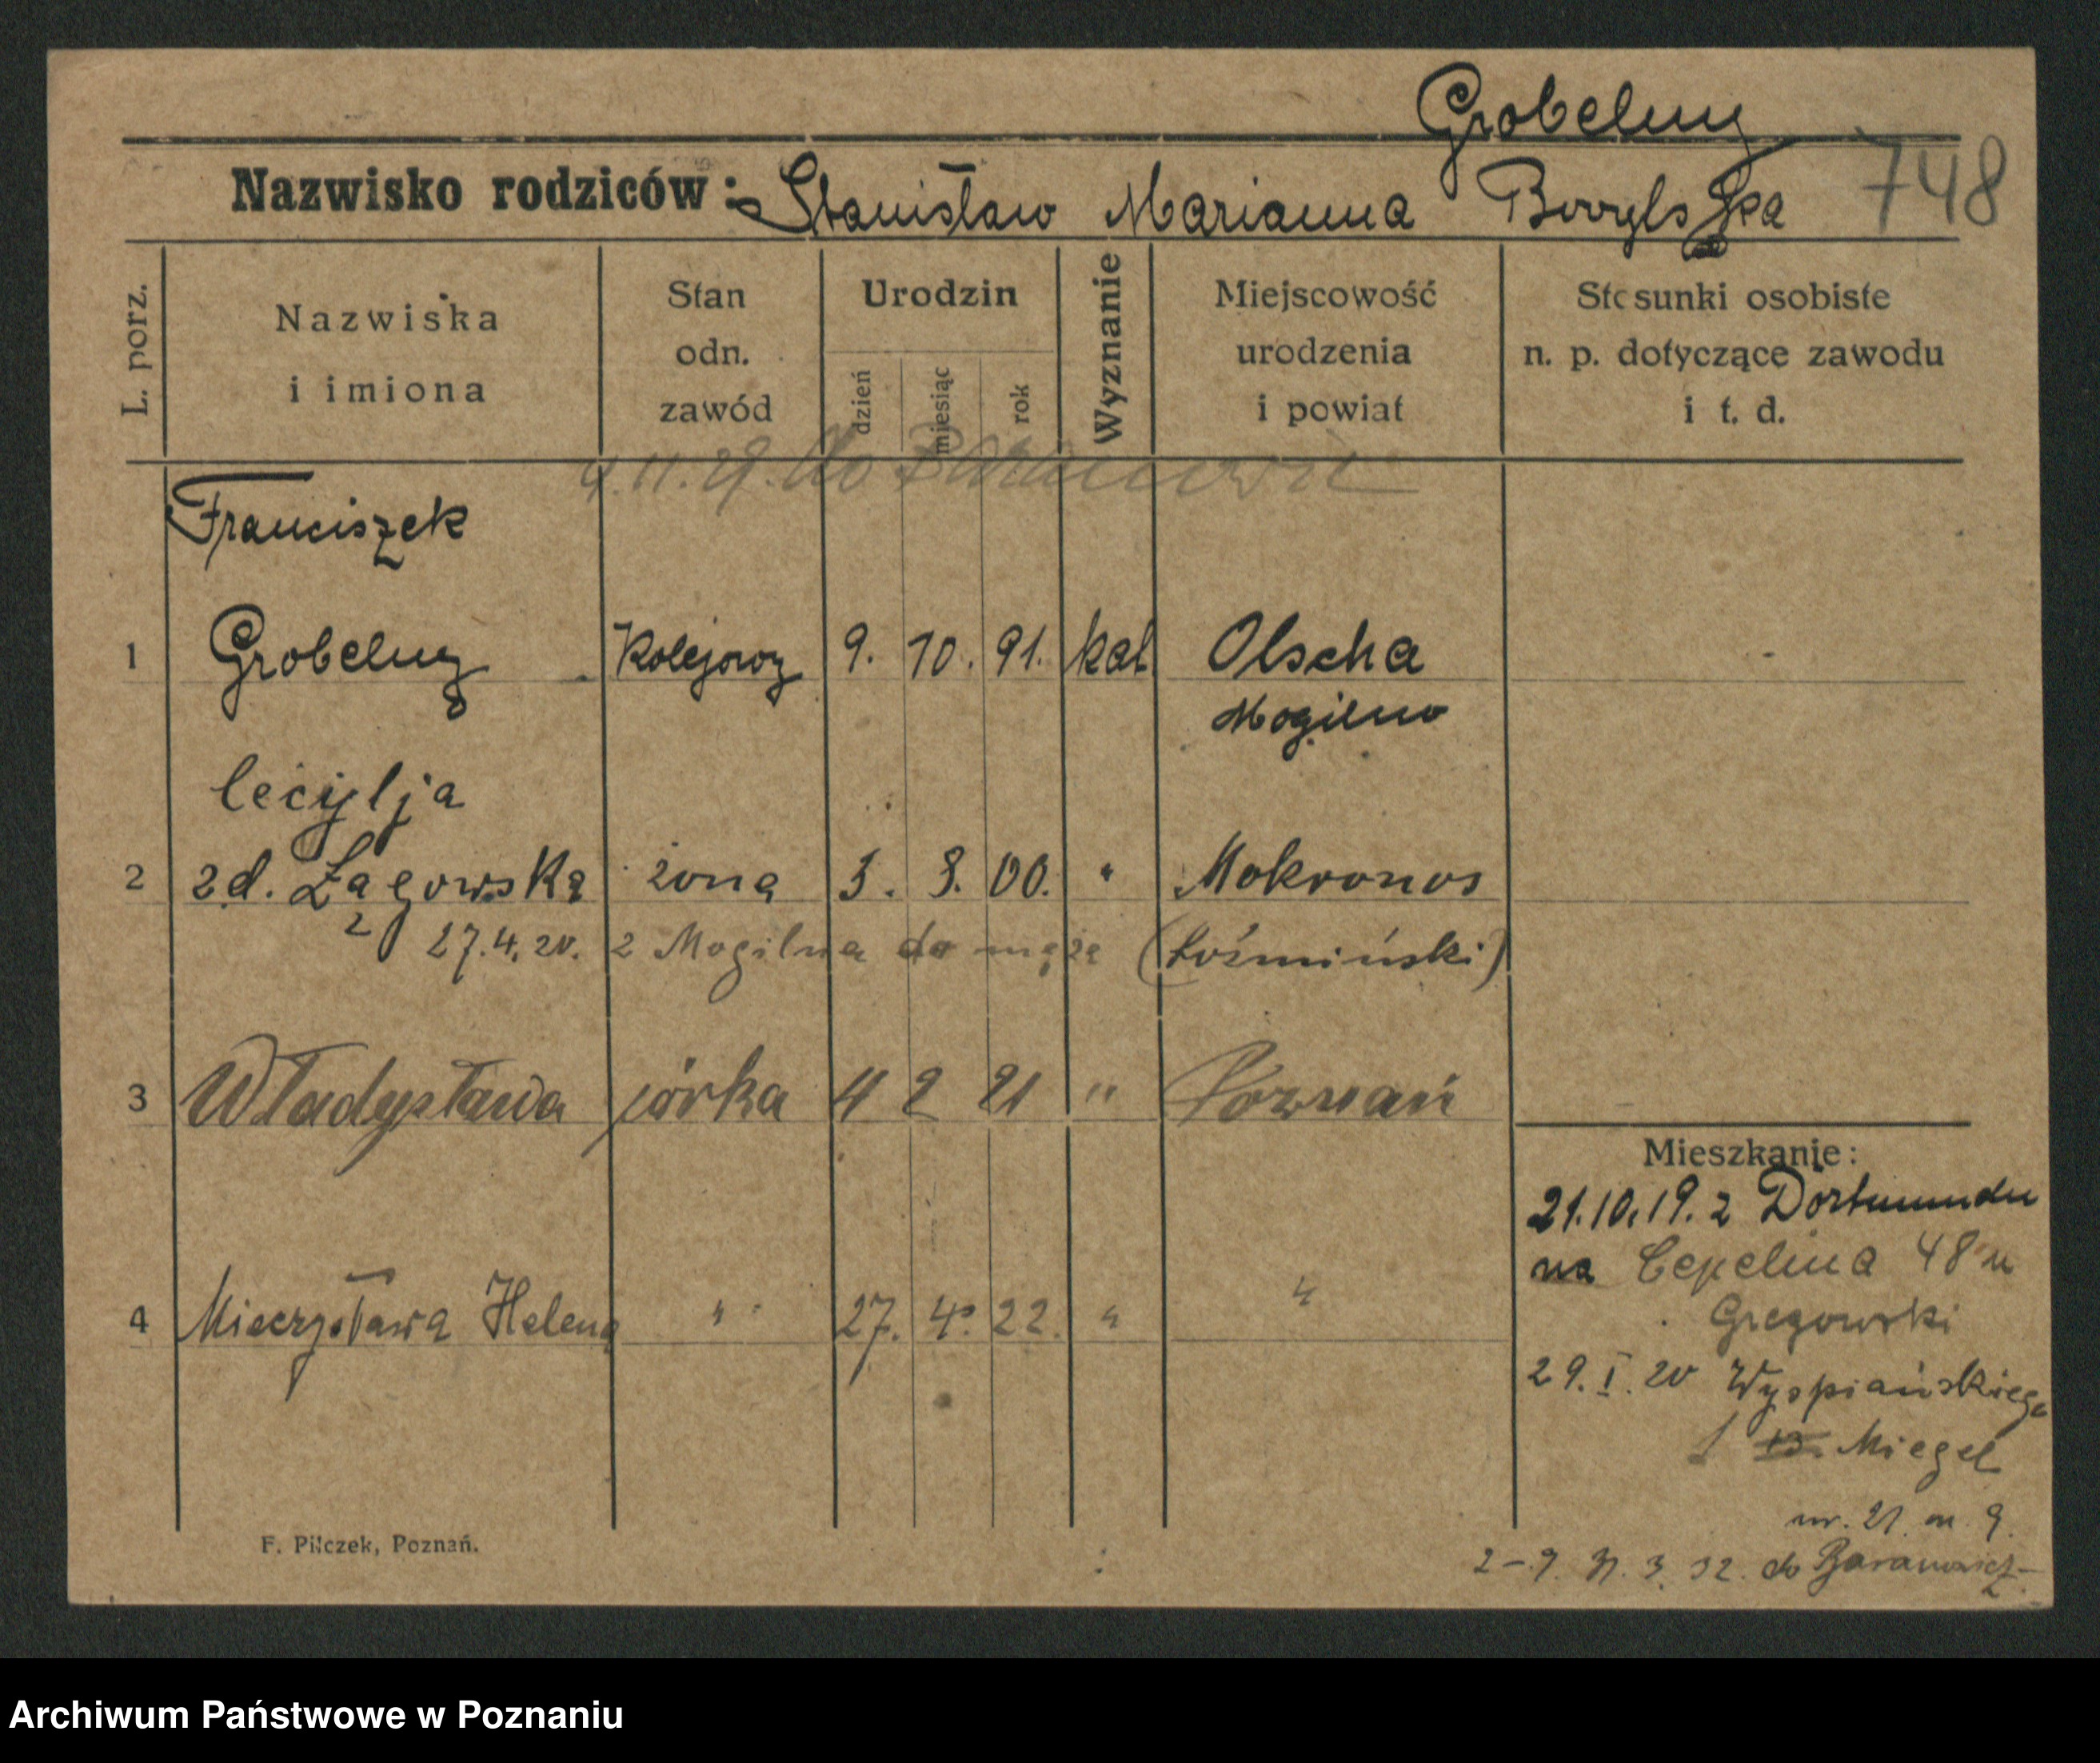 Grobelny
Nazwisko rodziców: Stanisław Marianna 748
L. porz.
Nazwiska
i imiona
Stan
odn.
zawód
Urodzin
dzień
miesiąc
rok
Wyznanie
Miejscowość
urodzenia
i powiat
Stosunki osobiste
n. p. dotyczące zawodu
i t. d.
9.11.29. do
Franciszek
1 Grobelny Kolejowy 9. 10. 91. kat. Olscha
Mogilno
Cecylja
2 zd. Żagowska żona 3. 8. 00. " Mokronos
27.4.20. z Mogilna do męża (Koźmiński)
3 Władysława córka 4 2 21 " Poznań
4 Mieczysława Helena " 27. 4. 22. " "
Mieszkanie:
21.10.19. z Dortmundu
na Cepelina 48 u
Gregowski
29.I.20 Wyspiańskiego
1 13. Miegel
nr. 21 m. 9.
31. 3. 32. do Baranowicz
F. Pilczek, Poznań.
Archiwum Państwowe w Poznaniu